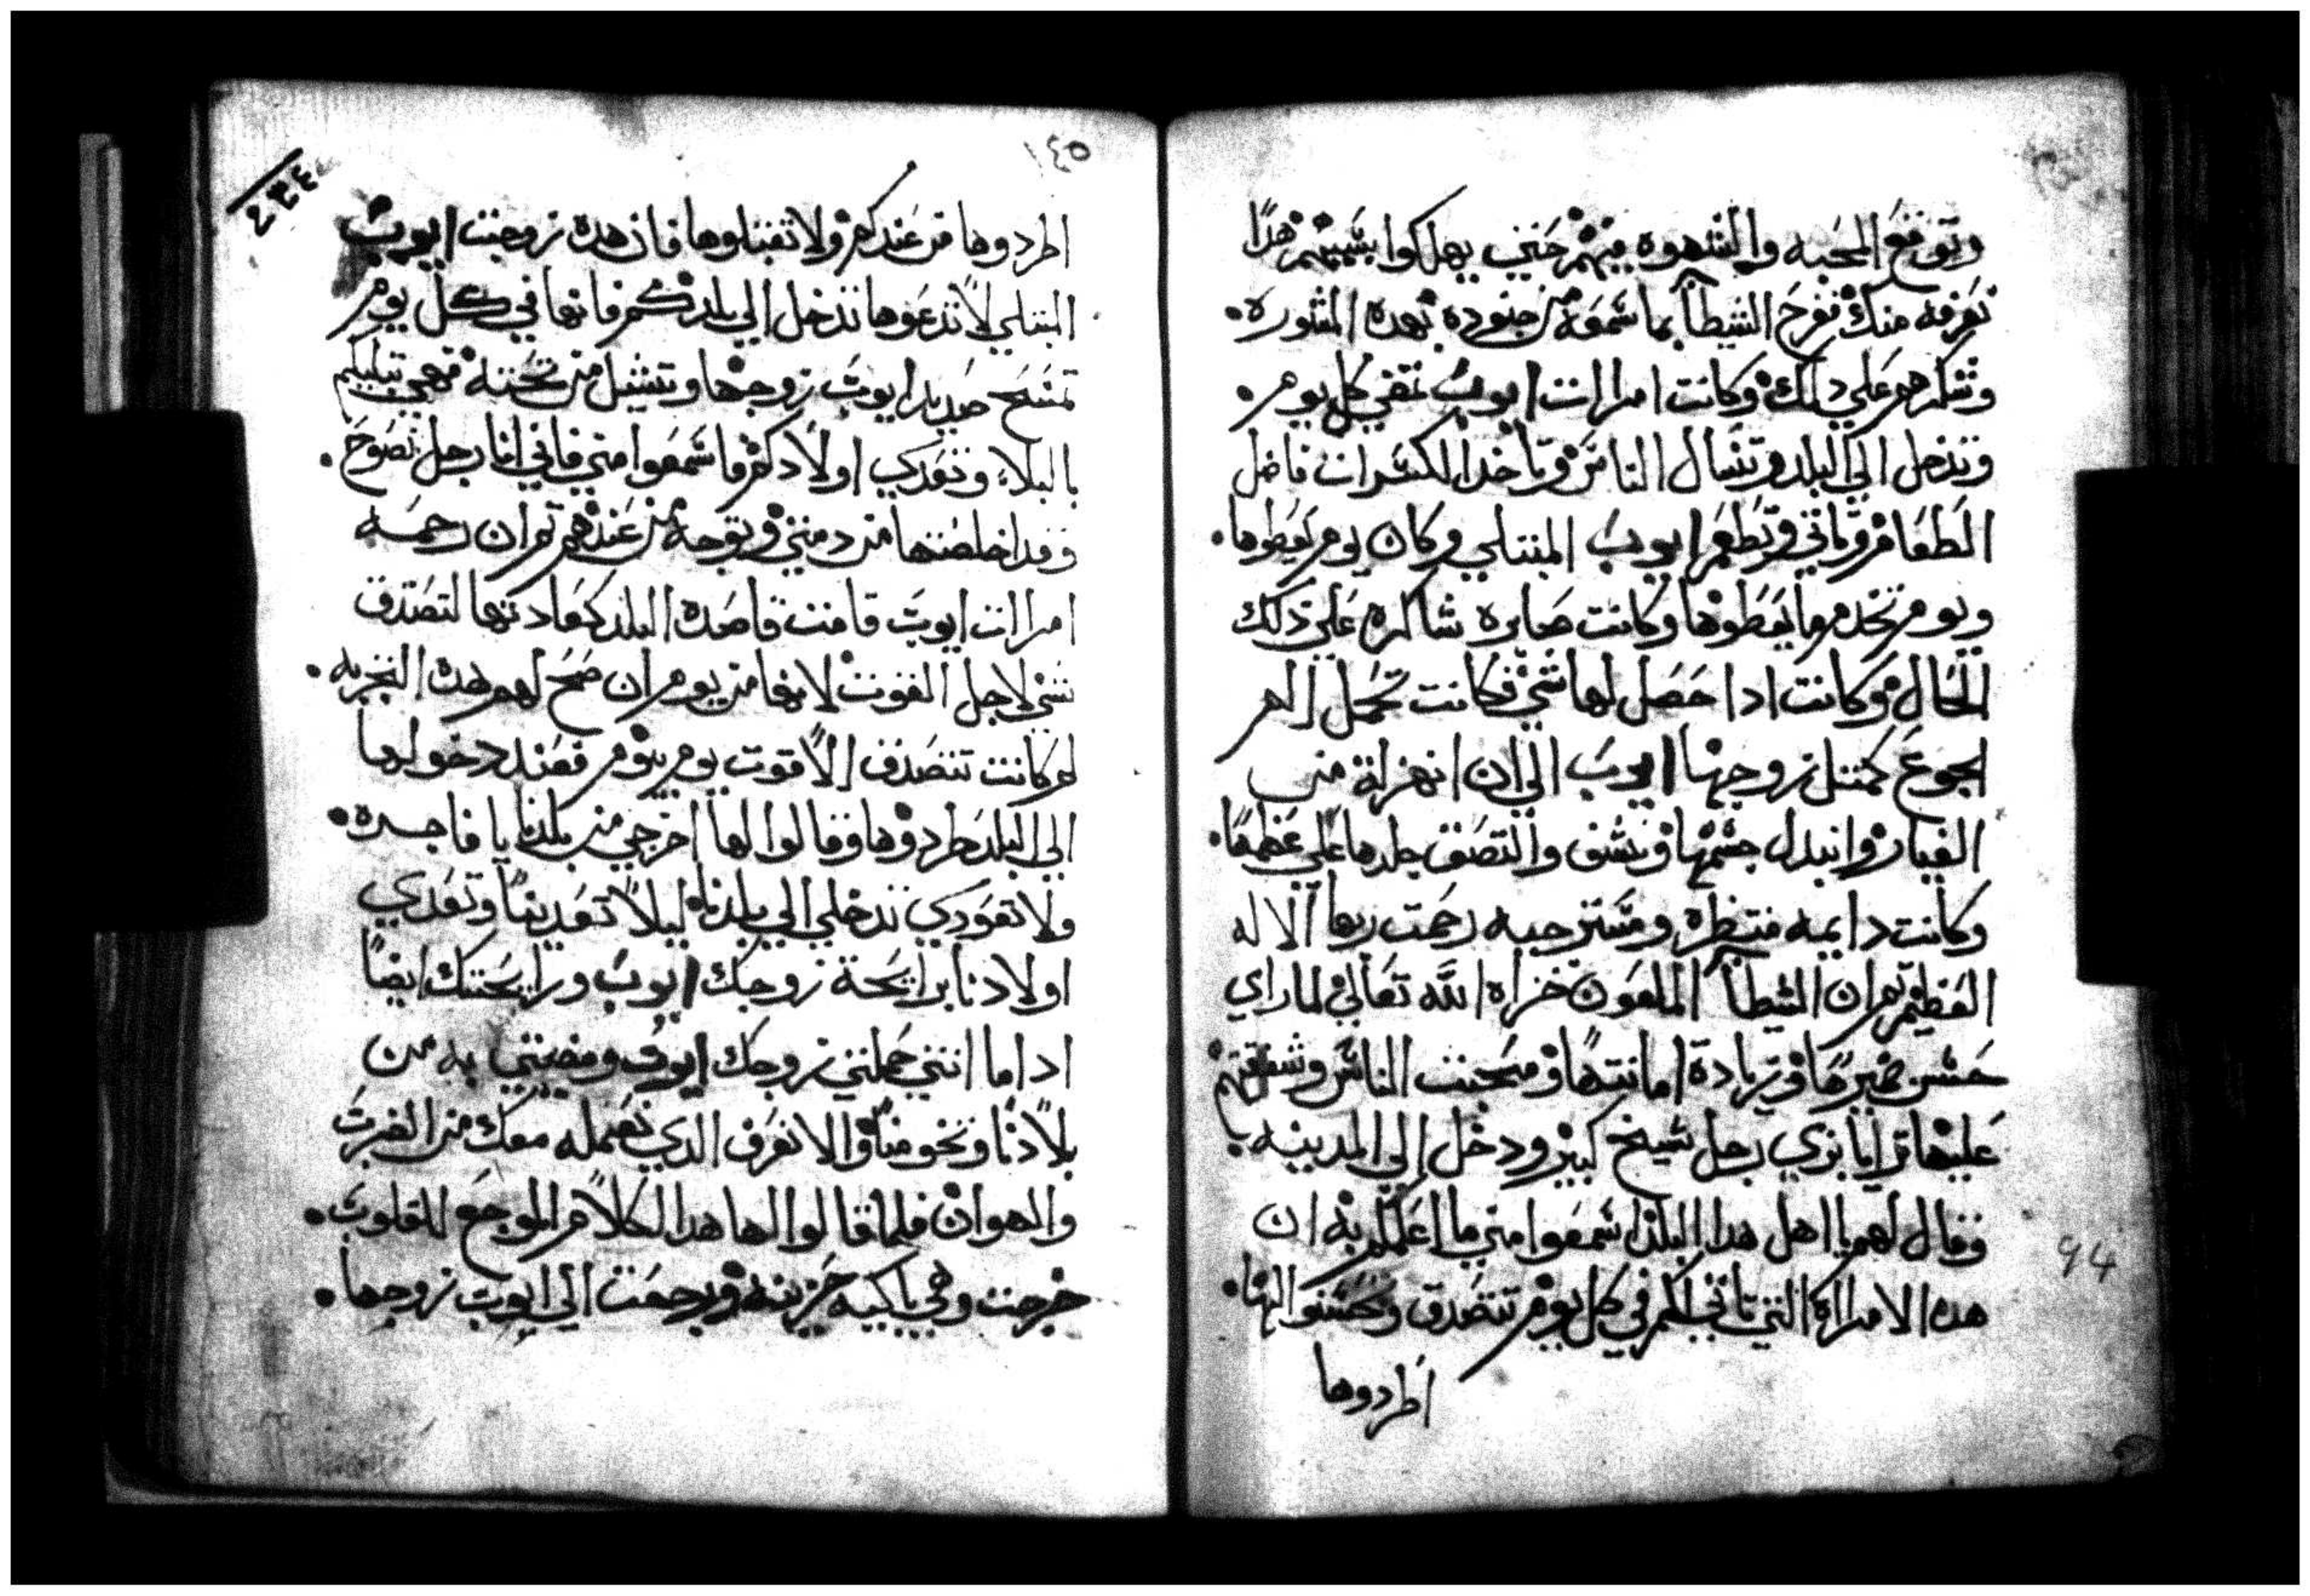 وتوقع المحبه والشهوه بينهم حتي يهلكوا بسببهم هدا
نعرفه منك ففرح الشيطان بما سمعه من جنوده بهده المشوره
وشكرهم علي دلك وكانت امراات ايوب تمضي كل يوم
وتدخل الي البلد وتسال الناس وتاخد الكسرات فاضل
الطعام وتاتي وتطعم ايوب المبتلي وكان يوم يعطوها
ويوم تخدم ما يعطوها وكانت صابره شاكره علي دلك
الحال وكانت ادا حصل لها شي فكانت تحمل الم
الجوع كمتل زوجها ايوب الي ان انهزلة من
الغيار وانبدل جسمها ونشف والتصق جلدها علي عظمها
وكانت دايمه منتظره ومسترجيه رحمت ربها الاله
العظيم تم ان الشيطان الملعون خزاه الله تعالي لما راي
حسن ضميرها وزيادة امانتها ومحبت الناس وشفقتهم
عليها تزايا بزي رجل شيخ كبير ودخل الي المدينه
وقال لهم يا اهل هدا البلد اسمعوا مني ما اعلمكم به ان
هده الامراه التي تاتيكم في كل يوم تتصدق وتحسنوا اليها
اطردوها
١٤٥
٤٣٤
اطردوها من عندكم ولا تقبلوها فان هده زوجت ايوب
المبتلي لا تدعوها تدخل الي بلدكم فانها في كل يوم
تمسح صديد ايوب زوجها وتشيل من تحته فهي تبليكم
بالبلاء وتعدي اولادكم فاسمعوا مني فاني انا رجل نصوح
وقد اخلصتها من دمتي وتوجه من عندهم تم ان رحمه
امراات ايوب قامت قاصده البلد كعادتها لتصدق
شي لاجل القوت لانها من يوم ان صح لهم هده التجربه
لم كانت تتصدق الا قوت يوم بيوم فعند دخولها
الي البلد طردوها وقالوا لها اخرجي من بلدنا يا فاجره
ولا تعودي تدخلي الي بلدنا ليلا تعدينا وتعدي
اولادنا برايحة زوجك ايوب ورايحتك ايضا
ادا ما انتي حملتي زوجك ايوب ومضيتي به من
بلادنا وتخو منا والا نعرف الدي نعمله معك من الضرب
والهوان فلما قالوا لها هدا الكلام الموجع للقلوب
خرجت وهي باكيه حزينه ورجعت الي ايوب زوجها
94